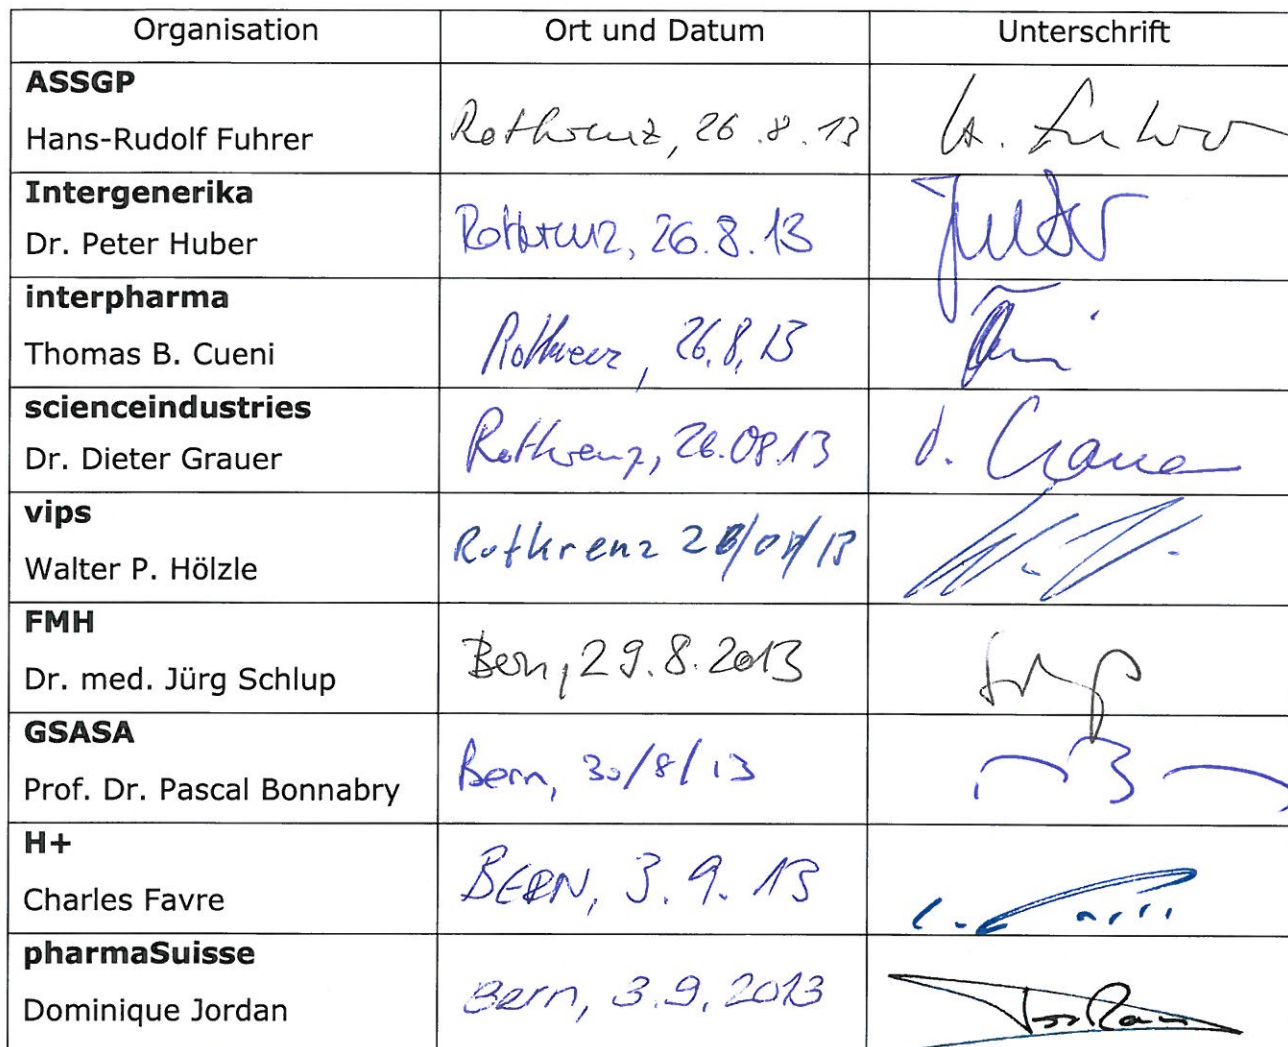 Organisation Ort und Datum Unterschrift
ASSGP
Hans-Rudolf Fuhrer Rotkreuz, 26.8.13 H. Fuhrer
Intergenerika
Dr. Peter Huber Rotkreuz, 26.8.13
interpharma
Thomas B. Cueni Rotkreuz, 26.8.13
scienceindustries
Dr. Dieter Grauer Rotkreuz, 26.08.13 D. Grauer
vips
Walter P. Hölzle Rotkreuz
FMH
Dr. med. Jürg Schlup Bern, 29.8.2013
GSASA
Prof. Dr. Pascal Bonnabry Bern, 30/8/13
H+
Charles Favre BERN, 3.9.13
pharmaSuisse
Dominique Jordan Bern, 3.9.2013